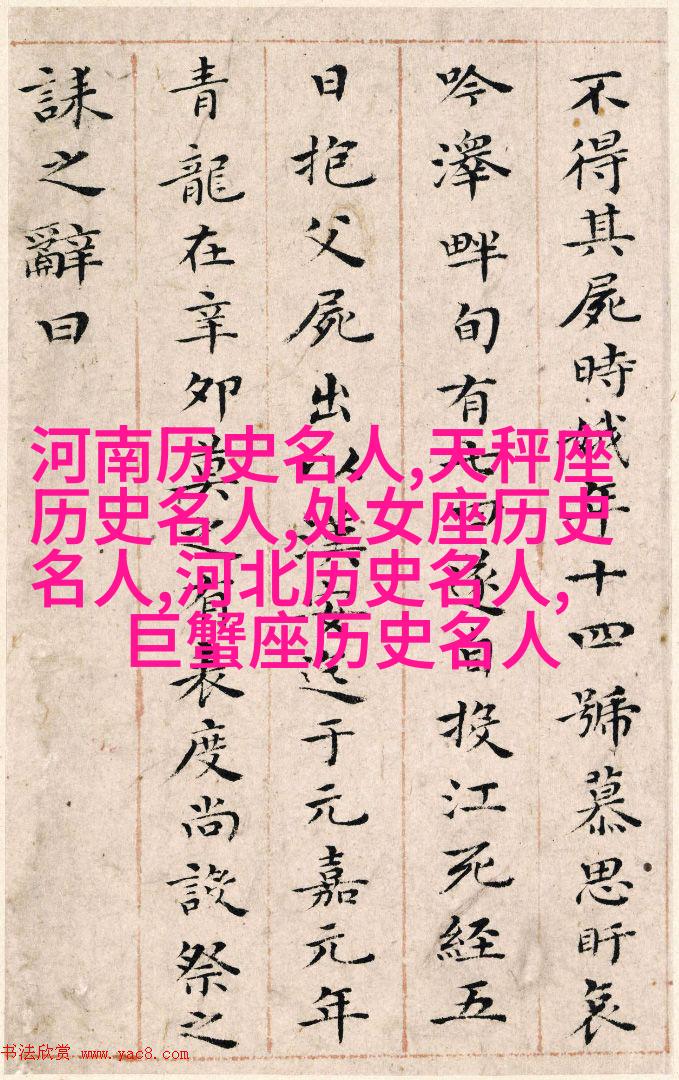 不得其屍時娥年十四號慕思盱哀
吟澤畔旬有七日遂自投江死經五
日抱父屍出以漢安迄于元嘉元年
青龍在辛卯莫之有表度尚設祭之
誄之辭曰
河南历史名人,天秤座
历史名人,处女座历史
名人,河北历史名人,
巨蟹座历史名人
书法欣赏 www.yac8.com